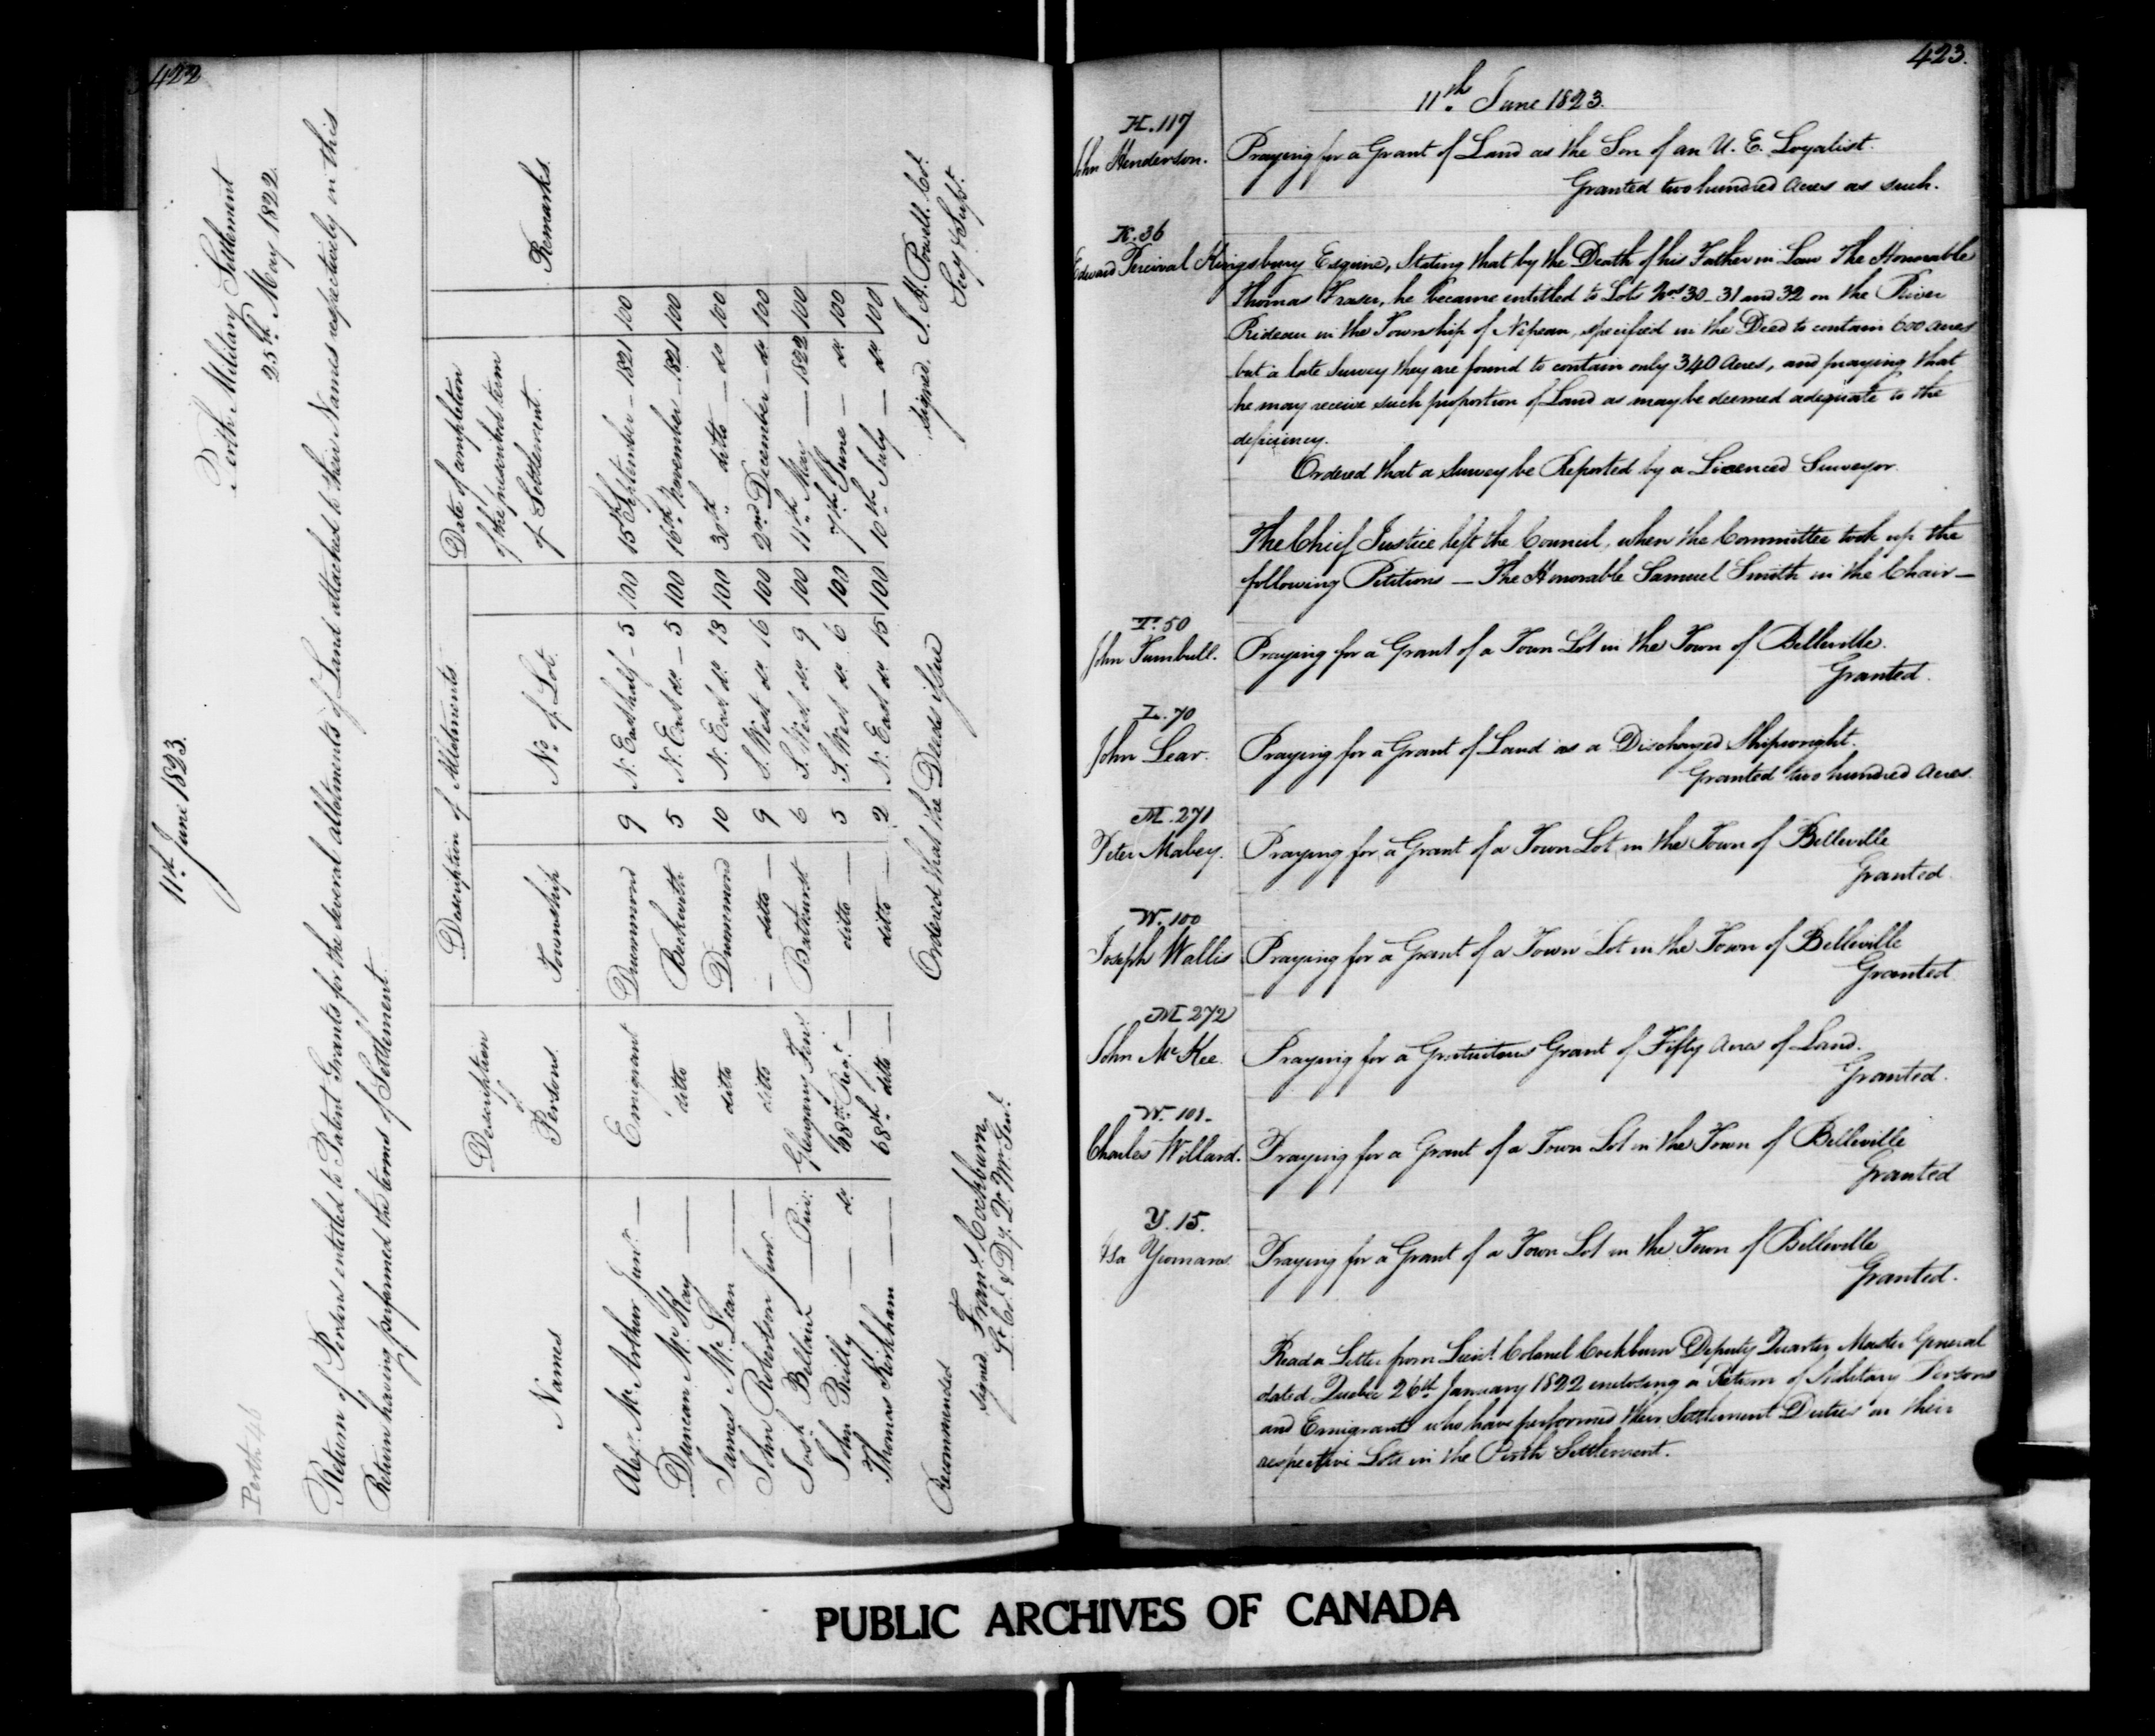 422
11th June 1823.
Perth Military Settlement
25th May 1822.
Return of Persons entitled to Patent Grants for the several allotments of Land attached to their Names respectively in this
Return having performed the terms of Settlement.
Perth 46
Names
Description of Persons.
Description of Allotments
Township
No. of Lot.
Date of completion of the prescribed term of Settlement.
Remarks.
Alexr. Mc.Arthur Junr. — Emigrant Drummond 9 N. East half - 5 100 15th September - 1821 100
Duncan Mc.Kay — ditto Beckwith 5 N. East do. - 5 100 16th November - 1821 100
James Mc.Lean — ditto Drummond 10 N. East do. 13 100 30th ditto - do 100
John Robertson Junr. — ditto — ditto — 9 S. West do. 16 100 2nd December - do 100
Josh. Bellair — Priv. Glengarry Fens. Bathurst 6 S. West do. 9 100 11th May — 1822 100
John Reilly — do. 68th Regt. — ditto — 5 S. West do. 6 100 7th June — do. 100
Thomas Kirkham — 68th ditto — ditto — 2 N. East do. 15 100 10th July — do 100
Recommended
signed. Frans. Cockburn.
Lt. Col. & Dy. Qr. Mr. Genl.
Ordered that the Deeds issue
signed. J. H. Powell. Col.
Secy & Supt.
423.
11th June 1823.
H. 117
John Henderson. Praying for a Grant of Land as the Son of an U. E. Loyalist.
Granted two hundred Acres as such.
K. 36
Edward Percival Kingsbury Esquire, Stating that by the Death of his Father in Law The Honorable
Thomas Fraser, he became entitled to Lots Nos 30 - 31 and 32 on the River
Rideau in the Township of Nepean, specified in the Deed to contain 600 acres
but a late Survey they are found to contain only 340 Acres, and praying that
he may receive such proportion of Land as may be deemed adequate to the
deficiency.
Ordered that a Survey be Reported by a Licenced Surveyor.
The Chief Justice left the Council, when the Committee took up the
following Petitions — The Honorable Samuel Smith in the Chair —
T. 50
John Turnbull. Praying for a Grant of a Town Lot in the Town of Belleville.
Granted.
L. 70
John Lear. Praying for a Grant of Land as a Discharged Shipwright.
Granted two hundred Acres.
M. 271
Peter Mabey. Praying for a Grant of a Town Lot in the Town of Belleville
Granted
W. 100
Joseph Wallis Praying for a Grant of a Town Lot in the Town of Belleville
Granted
M 272
John Mc.Kee. Praying for a Gratuitous Grant of Fifty Acres of Land.
Granted.
W. 101.
Charles Willard. Praying for a Grant of a Town Lot in the Town of Belleville
Granted
Y. 15.
Asa Yeomans. Praying for a Grant of a Town Lot in the Town of Belleville
Granted.
Read a Letter from Lieut. Colonel Cockburn Deputy Quarter Master General
dated Quebec 26th January 1822 enclosing a Return of Military Persons
and Emigrants who have performed their Settlement Duties on their
respective Lots in the Perth Settlement.
PUBLIC ARCHIVES OF CANADA